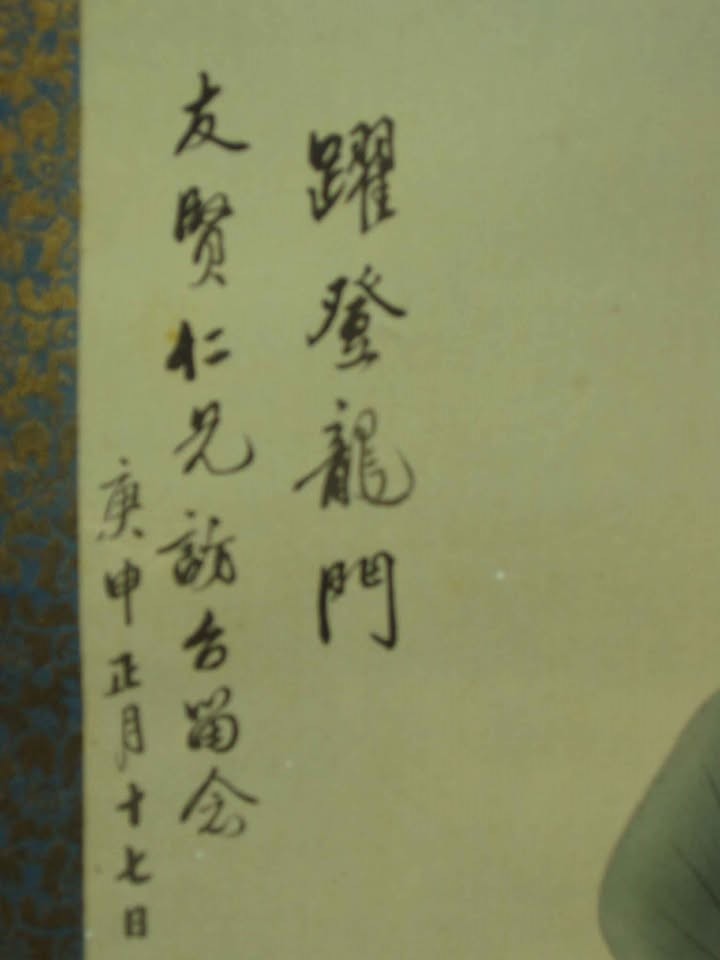 躍登龍門
友賢仁兄訪台留念
庚申正月十七日